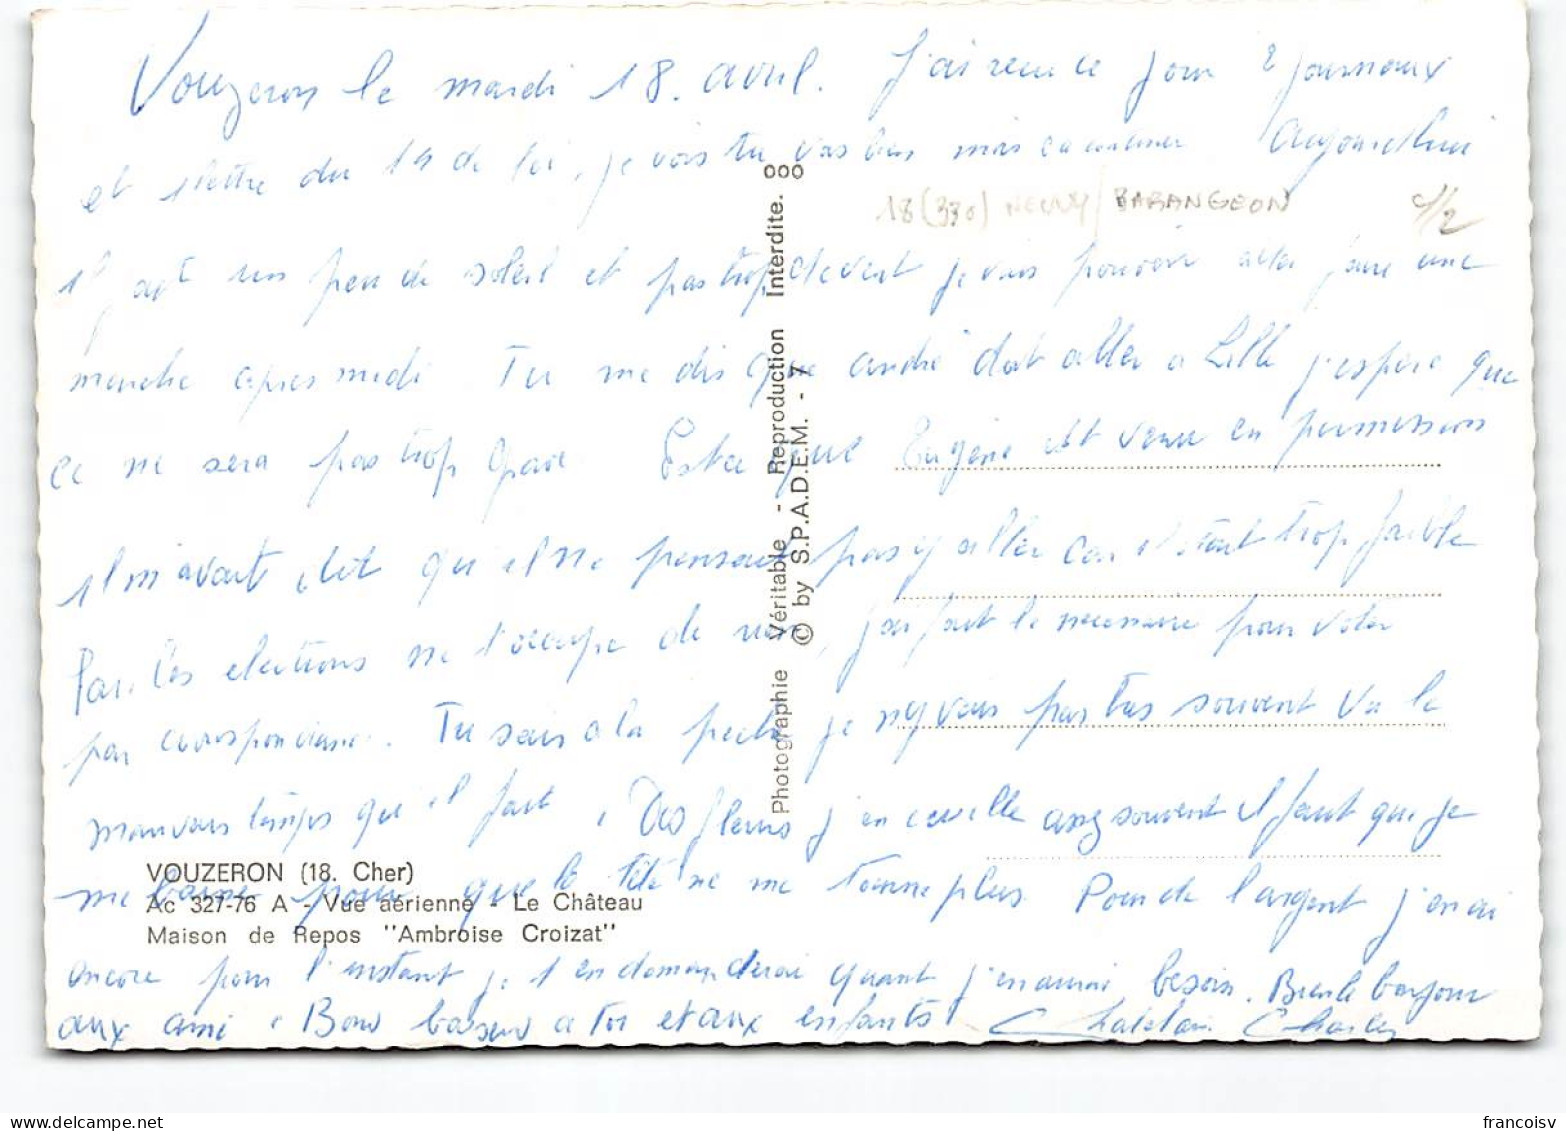 Vouzeron le mardi 18. avril. J'ai recu ce jour 2 journaux
et 1 lettre du 14 de toi, je vois tu vas bien mais Aujourdhui
18 (330) NEUVY / BARANGEON
1/2
il fait un peu de soleil et pas trop de vent je vais pouvoir aller faire une
marche apres midi. Tu me dis que andré doit aller a Lille j'espere que
ce ne sera pas trop grave Est ce que Eugène est venu en permission
il m'avait dit qu'il ne pensait pas y aller car il était trop faible
Par les elections ne t'occupe de rien, j'ai fait le necessaire pour voter
par correspondance. Tu sais a la peche je n'y vais pas tres souvent vu le
mauvais temps qu'il fait. Des fleurs j'en cueille assez souvent il faut que je
me baisse pour que la tête ne me tourne plus. Pour de l'argent j'en ai
encore pour l'instant je t'en demanderai quant j'en aurai besoin. Bien le bonjour
aux ami. Bons baisers a toi et aux enfants Chatelain Charles
VOUZERON (18. Cher)
Ac 327-76 A - Vue aérienne - Le Château
Maison de Repos "Ambroise Croizat"
Photographie Véritable - Reproduction Interdite.
© by S.P.A.D.E.M. - 7
francoisv